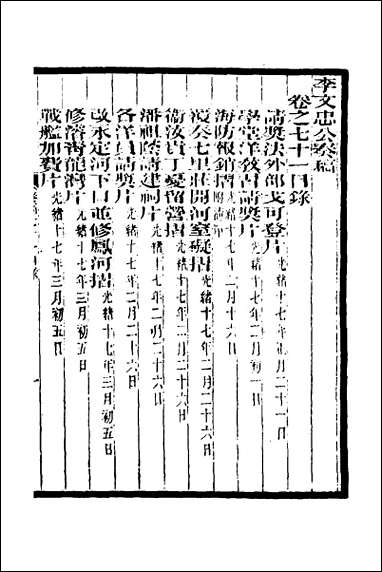 李文忠公奏稿
卷之七十一目錄
請獎法外部戈可登片光緒十七年正月二十一日
學堂洋敎習請獎片光緒十七年二月初一日
海防報銷摺附清單光緒十七年二月十六日
覆奏七里莊開河窒礙摺光緒十七年二月二十六日
衞汝貴丁憂留營摺光緒十七年二月二十六日
潘祖蔭請建祠片光緒十七年二月二十六日
各洋員請獎片光緒十七年二月二十六日
改永定河下口並修鳳河摺光緒十七年三月初五日
修濬靑龍灣片光緒十七年三月初五日
戰艦加費片光緒十七年三月初五日